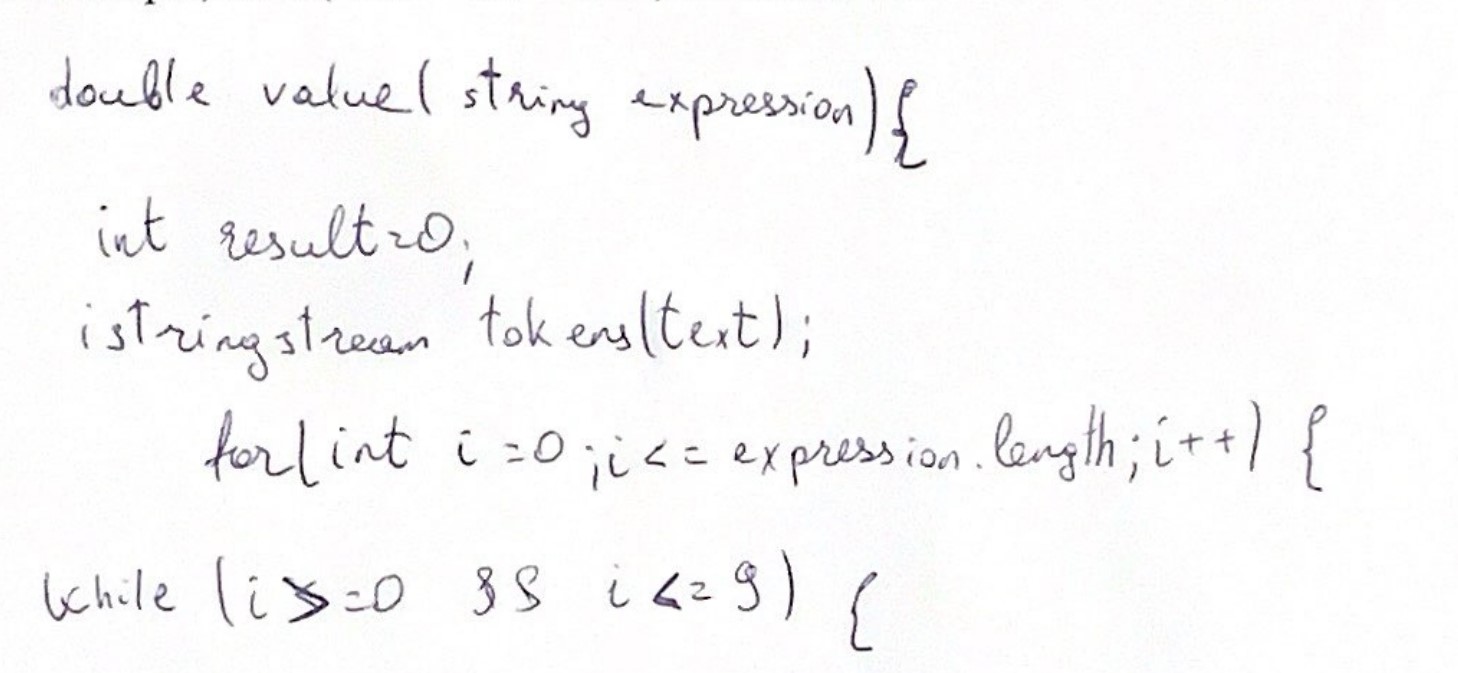 double value( string expression){
int result=0;
istringstream tokens(text);
for( int i=0;i<= expression.length;i++) {
while (i>=0 && i<=9) {